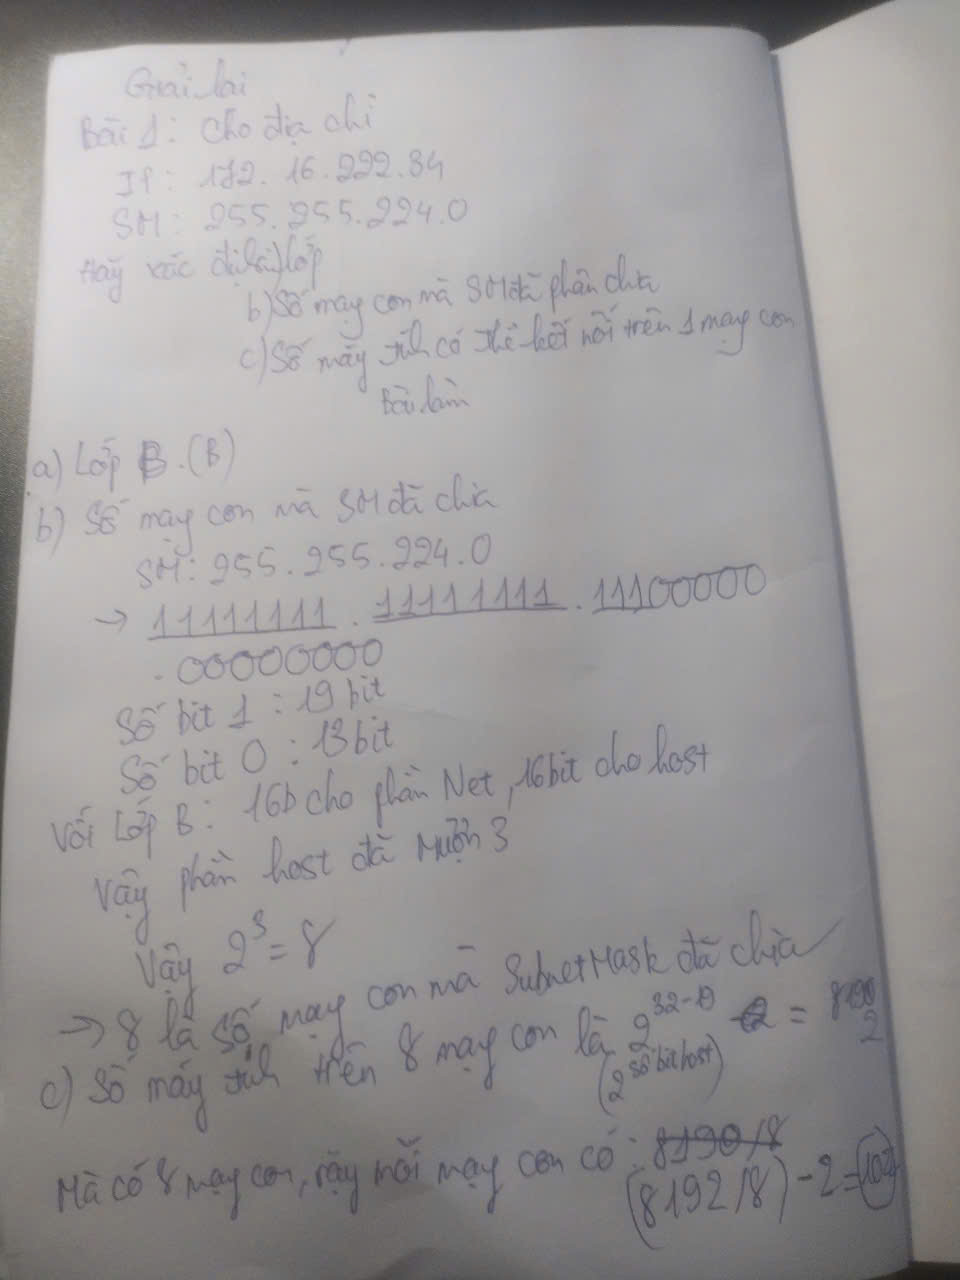 Giải lại
Bài 1: Cho địa chỉ
IP: 172.16.222.34
SM: 255.255.224.0
Hãy xác định a) Lớp
b) Số mạng con mà SM đã phân chia
c) Số máy tính có thể kết nối trên 1 mạng con
Bài làm
a) Lớp B. (B)
b) Số mạng con mà SM đã chia
SM: 255.255.224.0
→ 11111111 . 11111111 . 11100000
. 00000000
Số bit 1 : 19 bit
Số bit 0 : 13 bit
Với Lớp B: 16b cho phần Net, 16 bit cho host
Vậy phần host đã mượn 3
Vậy 2³ = 8
→ 8 là số mạng con mà SubnetMask đã chia
c) Số máy tính trên 8 mạng con là 2³²⁻¹⁹ = 819
(2 số bit host)
Mà có 8 mạng con, vậy mỗi mạng con có : 8190/8
(8192/8) - 2 = 102